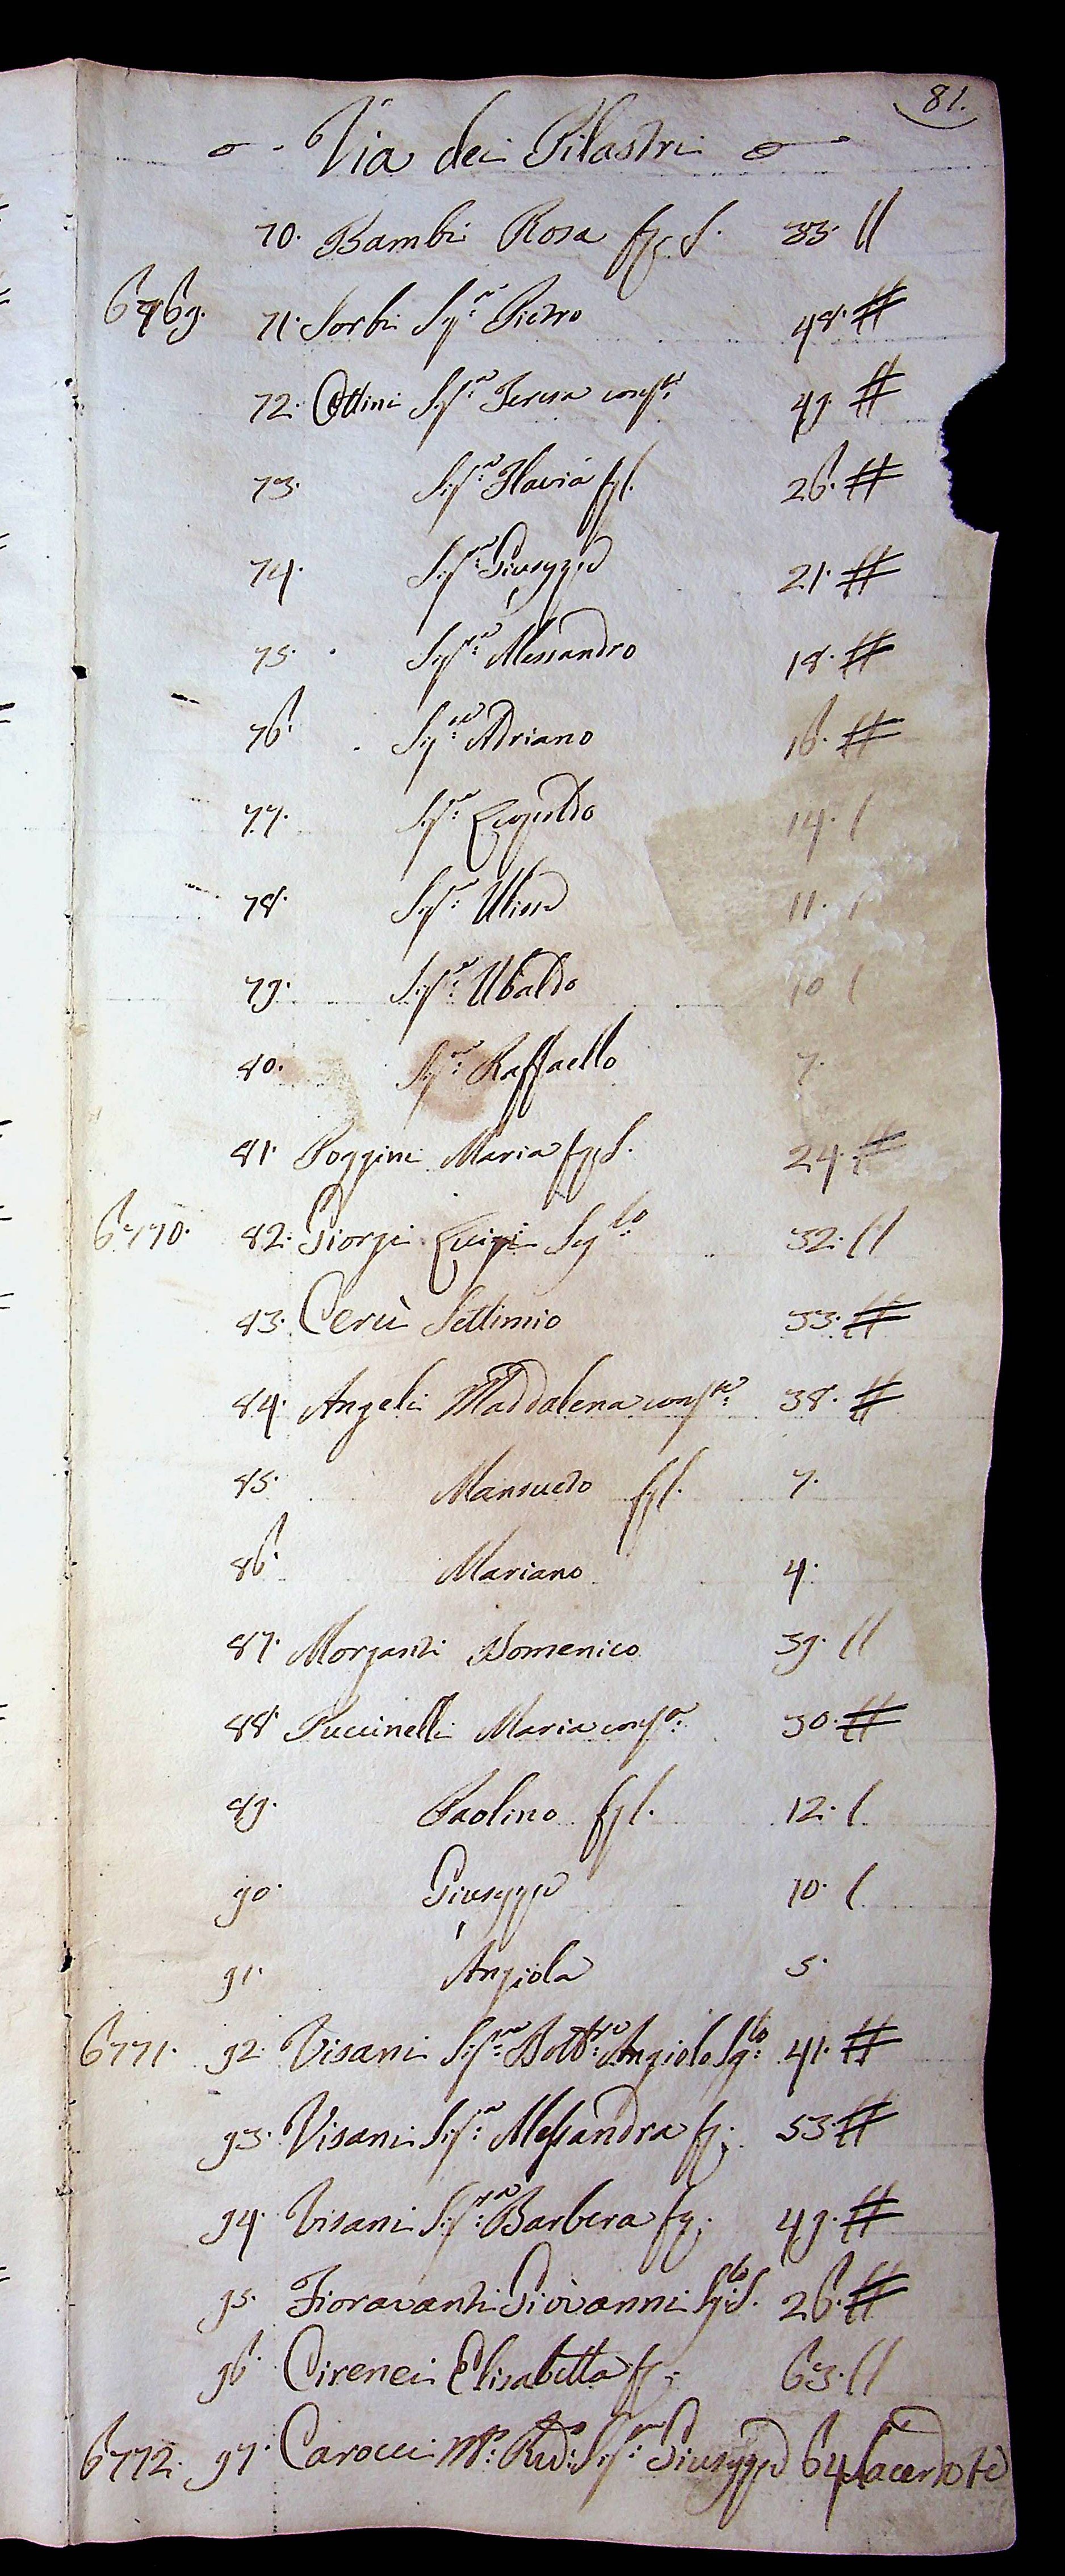 81.
Via dei Pilastri
70. Bambi Rosa fz. S. 33. //
6769. 71. Sorbi Sig.r Pietro 48. #
72. Ottini Sig.ra Teresa cons.ti 49. #
73. Sig.ra Flavia fgl. 26. #
74. Sig.r Giuseppe 21. #
75. Sig.r Alessandro 18. #
76. Sig.r Adriano 16. #
77. Sig.r Leopoldo 14. /
78. Sig.r Ulisse 11. /
79. Sig.r Ubaldo 10 /
80. Sig.r Raffaello 7.
81. Poggini Maria fz. S. 24. #
6770. 82. Giorgi Luigi Sg.lo 32. //
83. Cerù Settimio 33. #
84. Angeli Maddalena cons.te 38. #
85. Mansueto fgl. 7.
86. Mariano 4.
87. Morganti Domenico 39. //
88 Puccinelli Maria cons.e 30. #
89. Paolino fgl. 12. /
90. Giuseppe 10. /
91. Angiola 5.
6771. 92. Visani Sig.r Dott.re Angiolo Sg.lo 41. #
93. Visani Sig.ra Alessandra fz. 53. #
94. Visani Sig.ra Barbera fz. 49. #
95. Fioravanti Giovanni Sg.lo S. 26. #
96. Cirenei Elisabetta fz. 63. //
6772. 97. Carocci M.to Red.o Sig.r Giuseppe 64 Sacerdote